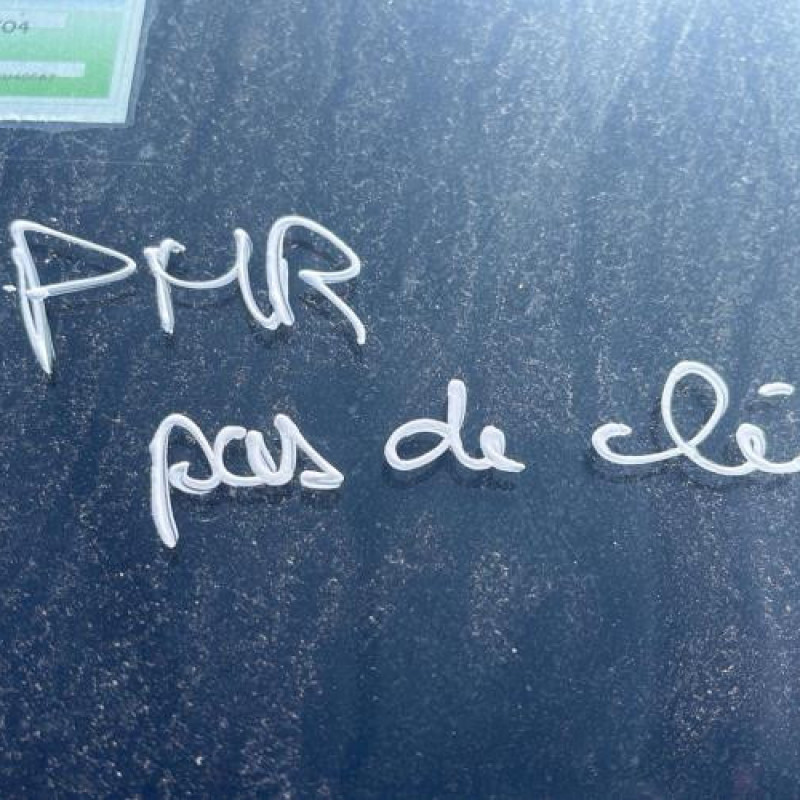 04
PMR
pas de clé